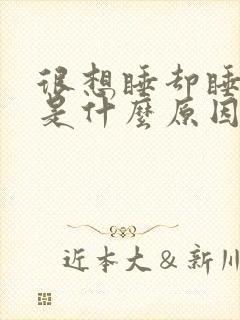 很想睡却睡
是什麼原因
近本大&新川